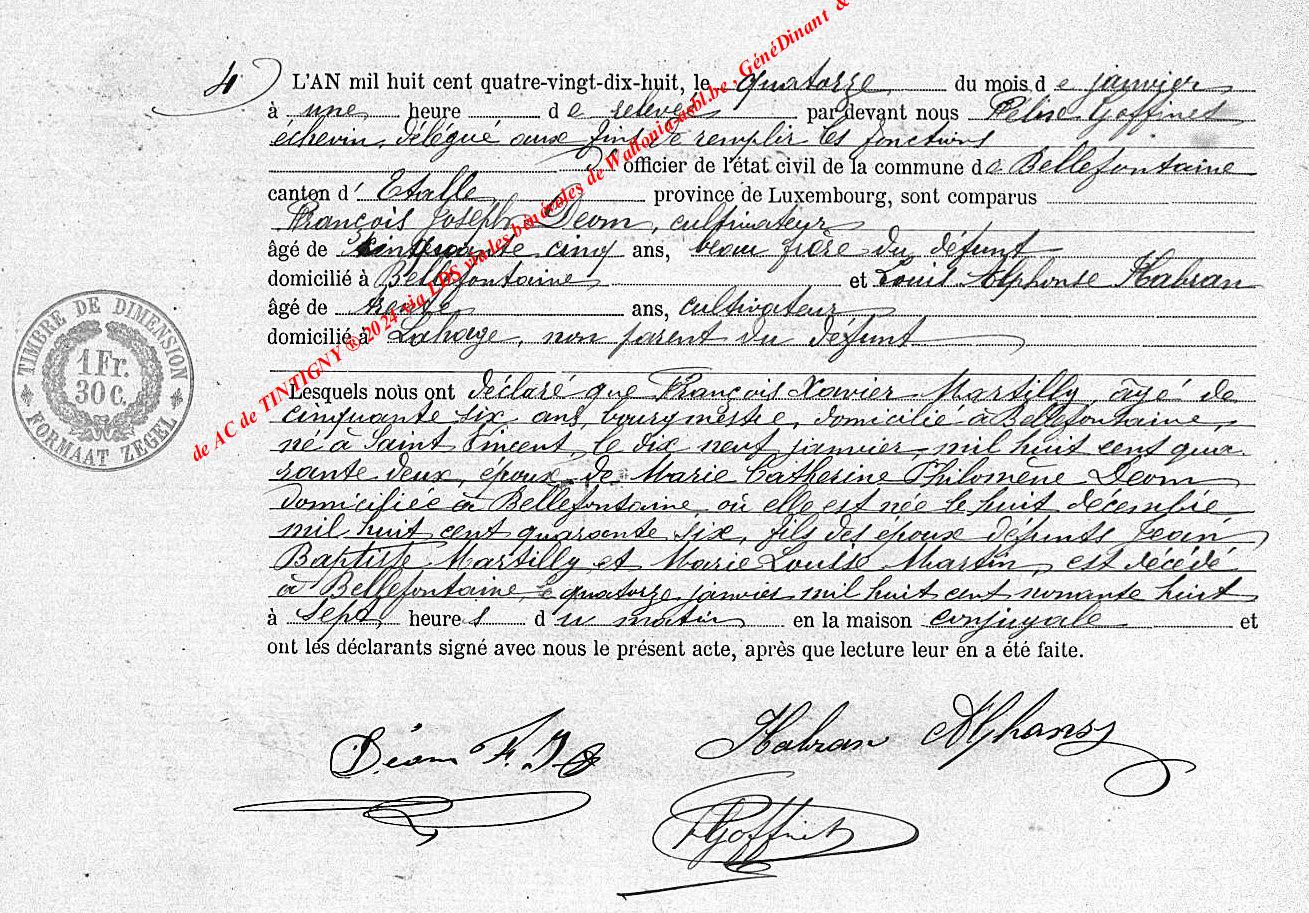 4 L'AN mil huit cent quatre-vingt-dix-huit, le quatorze du mois de janvier
à une heure de relevée par devant nous Goffinet
échevin, délégué aux fins de remplir les fonctions
d'officier de l'état civil de la commune de Bellefontaine
canton d'Etalle province de Luxembourg, sont comparus
François Joseph Deom, cultivateur
âgé de cinquante cinq ans, beau frère du défunt
domicilié à Bellefontaine et Louis Alphonse Habran
âgé de trente ans, cultivateur
domicilié à Lahage, non parent du défunt
Lesquels nous ont déclaré que François Xavier Martilly, âgé de
cinquante six ans, bourgmestre, domicilié à Bellefontaine,
né à Saint Vincent, le dix neuf janvier mil huit cent qua-
rante deux, époux de Marie Catherine Philomène Deom
domiciliée à Bellefontaine où elle est née le huit décembre
mil huit cent quarante six, fils des époux défunts Jean
Baptiste Martilly et Marie Louise Martin, est décédé
à Bellefontaine, le quatorze janvier mil huit cent nonante huit
à sept heures du matin en la maison conjugale et
ont les déclarants signé avec nous le présent acte, après que lecture leur en a été faite.
TIMBRE DE DIMENSION
1 Fr.
30 c.
FORMAAT ZEGEL
de AC de TINTIGNY ® 2024 via LDS via les bénévoles de Wallonia-asbl.be , GénéDinant &
Déom F. J
Habran Alphons
Goffinet